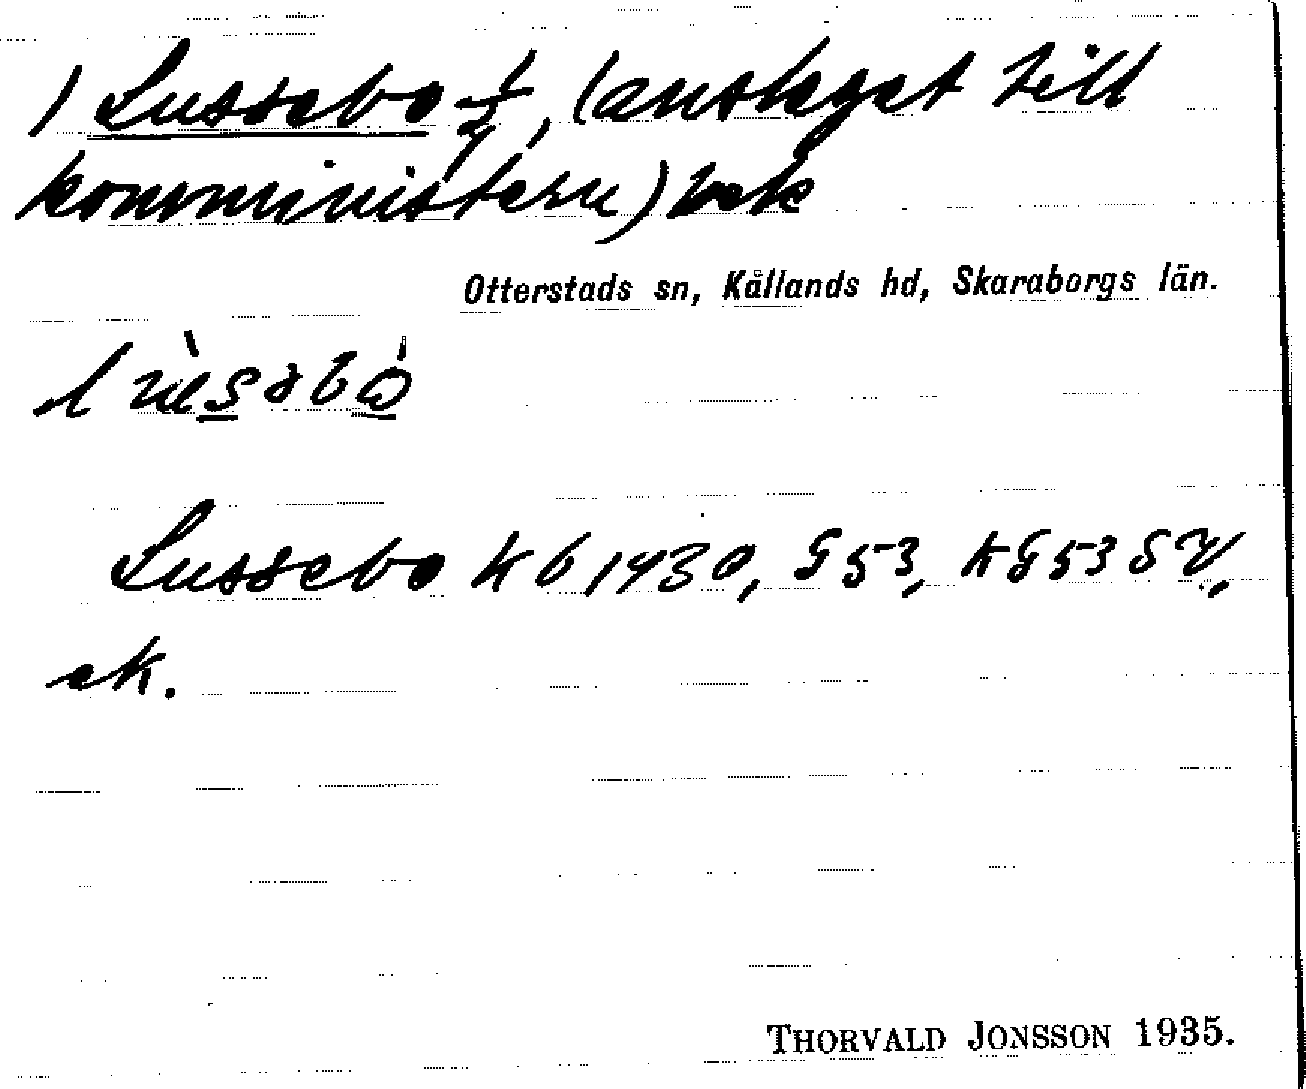 1 Lussebo 1/4, (anslaget till
komministern) bek
Otterstads sn, Kållands hd, Skaraborgs län.
Lussebo Kb 1930, G 53, KG 53 SV,
ek.
THORVALD JONSSON 1935.